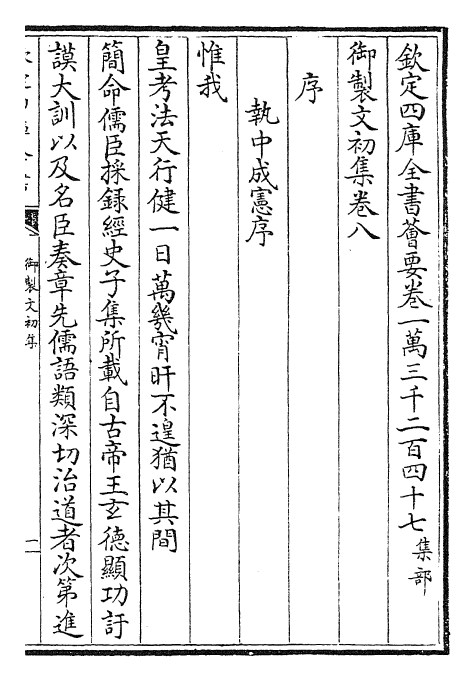 欽定四庫全書薈要卷一萬三千二百四十七集部
御製文初集卷八
序
執中成憲序
惟我
皇考法天行健一日萬幾宵旰不遑猶以其間
簡命儒臣採録經史子集所載自古帝王玄德顯功訏
謨大訓以及名臣奏章先儒語類深切治道者次第進
御製文初集
一